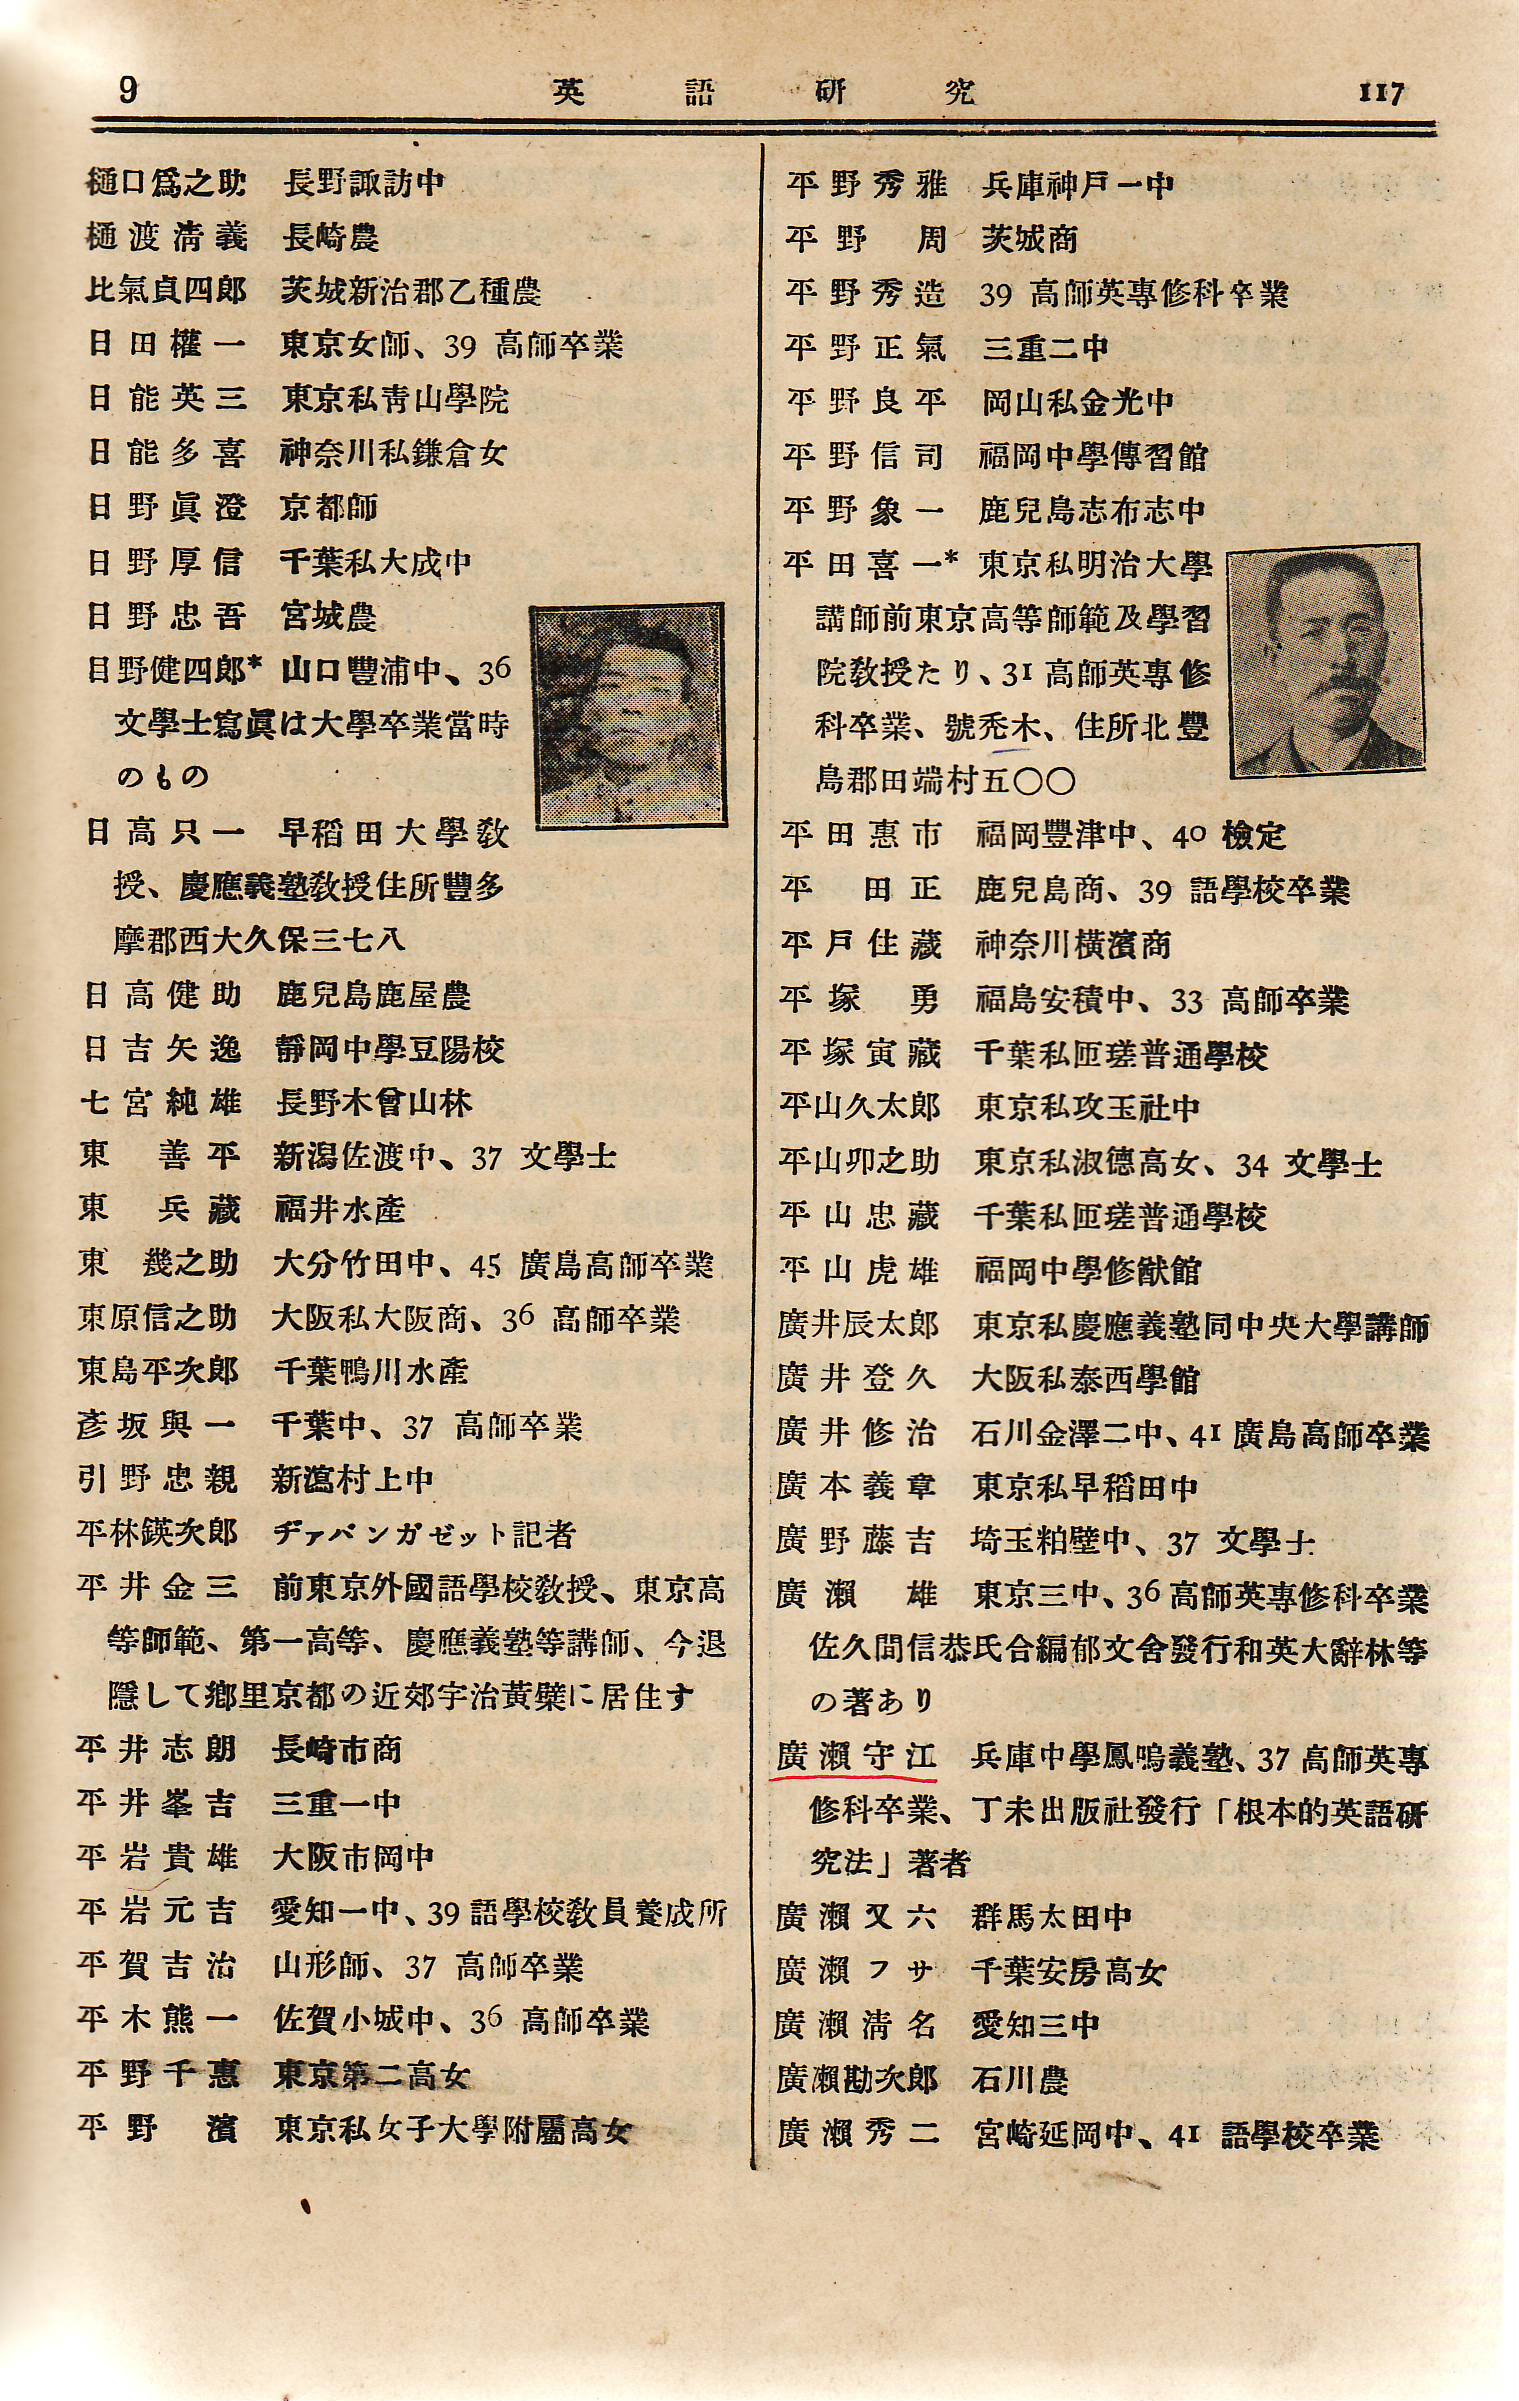 9 英語研究 117
樋口爲之助 長野諏訪中
樋渡淸義 長崎農
比氣貞四郎 茨城新治郡乙種農
日田權一 東京女師、39 高師卒業
日能英三 東京私靑山學院
日能多喜 神奈川私鎌倉女
日野眞澄 京都師
日野厚信 千葉私大成中
日野忠吾 宮城農
日野健四郎* 山口豐浦中、36
文學士寫眞は大學卒業當時
のもの
日高只一 早稻田大學敎
授、慶應義塾敎授住所豐多
摩郡西大久保三七八
日高健助 鹿兒島鹿屋農
日吉矢逸 靜岡中學豆陽校
七宮純雄 長野木曾山林
東善平 新潟佐渡中、37 文學士
東兵藏 福井水產
東幾之助 大分竹田中、45 廣島高師卒業
東原信之助 大阪私大阪商、36 高師卒業
東島平次郎 千葉鴨川水產
彥坂與一 千葉中、37 高師卒業
引野忠親 新潟村上中
平林鍈次郎 ヂァパンガゼット記者
平井金三 前東京外國語學校敎授、東京高
等師範、第一高等、慶應義塾等講師、今退
隱して鄕里京都の近郊宇治黃檗に居住す
平井志朗 長崎市商
平井峯吉 三重一中
平岩貴雄 大阪市岡中
平岩元吉 愛知一中、39 語學校敎員養成所
平賀吉治 山形師、37 高師卒業
平木熊一 佐賀小城中、36 高師卒業
平野千惠 東京第二高女
平野濱 東京私女子大學附屬高女
平野秀雅 兵庫神戸一中
平野周 茨城商
平野秀造 39 高師英專修科卒業
平野正氣 三重二中
平野良平 岡山私金光中
平野信司 福岡中學傳習館
平野象一 鹿兒島志布志中
平田喜一* 東京私明治大學
講師前東京高等師範及學習
院敎授たり、31 高師英專修
科卒業、號禿木、住所北豐
島郡田端村五〇〇
平田惠市 福岡豐津中、40 檢定
平田正 鹿兒島商、39 語學校卒業
平戸住藏 神奈川橫濱商
平塚勇 福島安積中、33 高師卒業
平塚寅藏 千葉私匝瑳普通學校
平山久太郎 東京私攻玉社中
平山卯之助 東京私淑德高女、34 文學士
平山忠藏 千葉私匝瑳普通學校
平山虎雄 福岡中學修猷館
廣井辰太郎 東京私慶應義塾同中央大學講師
廣井登久 大阪私泰西學館
廣井修治 石川金澤二中、41 廣島高師卒業
廣本義章 東京私早稻田中
廣野藤吉 埼玉粕壁中、37 文學士
廣瀨雄 東京三中、36 高師英專修科卒業
佐久間信恭氏合編郁文舍發行和英大辭林等
の著あり
廣瀨守江 兵庫中學鳳鳴義塾、37 高師英專
修科卒業、丁未出版社發行「根本的英語硏
究法」著者
廣瀨又六 群馬太田中
廣瀨フサ 千葉安房高女
廣瀨淸名 愛知三中
廣瀨勘次郎 石川農
廣瀨秀二 宮崎延岡中、41 語學校卒業